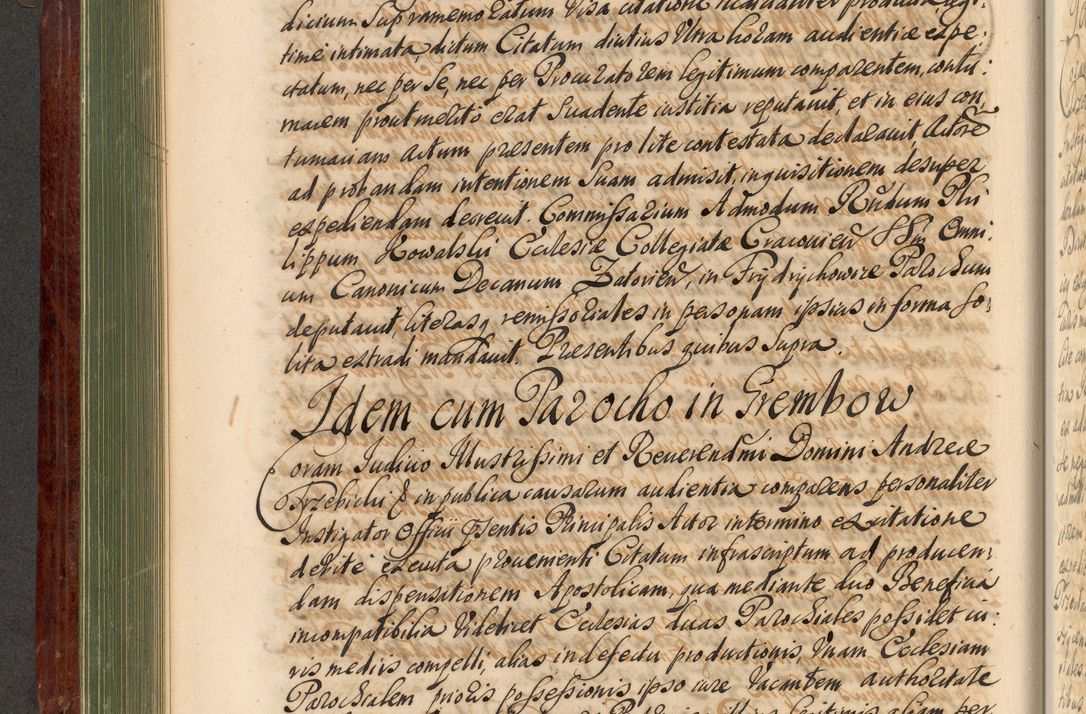 dicium Supramemoratum Visa citatione
time intimata, dictum Citatum diutius Ultra horam audientiæ expe:
ctatum, nec per se, nec per Procuratorem legitimum comparentem, contu:
macem prout merito erat Suadente iustitia reputauit, et in eius con,
tumaciam actum præsentem pro lite contestata declarauit, Actorē
ad probandam intentionem Suam admisit, inquisitionem desuper
expediendam decreuit. Commissarium Admodum Rñdum Phi
lippum Kowalski Ecclesiæ Collegiatæ Cracouieñ SSm̃ Omni:
um Canonicum Decanum Zatorieñ, in Frÿdrÿchowice Parochum
deputauit, literasq remissoriales in personam ipsius in forma so:
lita extradi mandauit. Præsentibus quibus Supra.
Idem cum Parocho in Grembow.
Coram Iudicio Illustrissimi et Reuerendm̃i Domini Andreæ
Trzebicki & in publica causarum audientia comparens personaliter
Instigator Officii pñsentis Principalis Actor in termino ex citatione
debite executa proueniente Citatum infrascriptum ad producen:
dam dispensationem Apostolicam, qua mediante duo Beneficia
incompatibilia Videlicet Ecclesias duas Parochiales possidet iu:
ris mediis compelli, alias in defectu productionis, Vnam Ecclesiam
Parochialem prioris possessionis ipso iure Vacantem authoritate